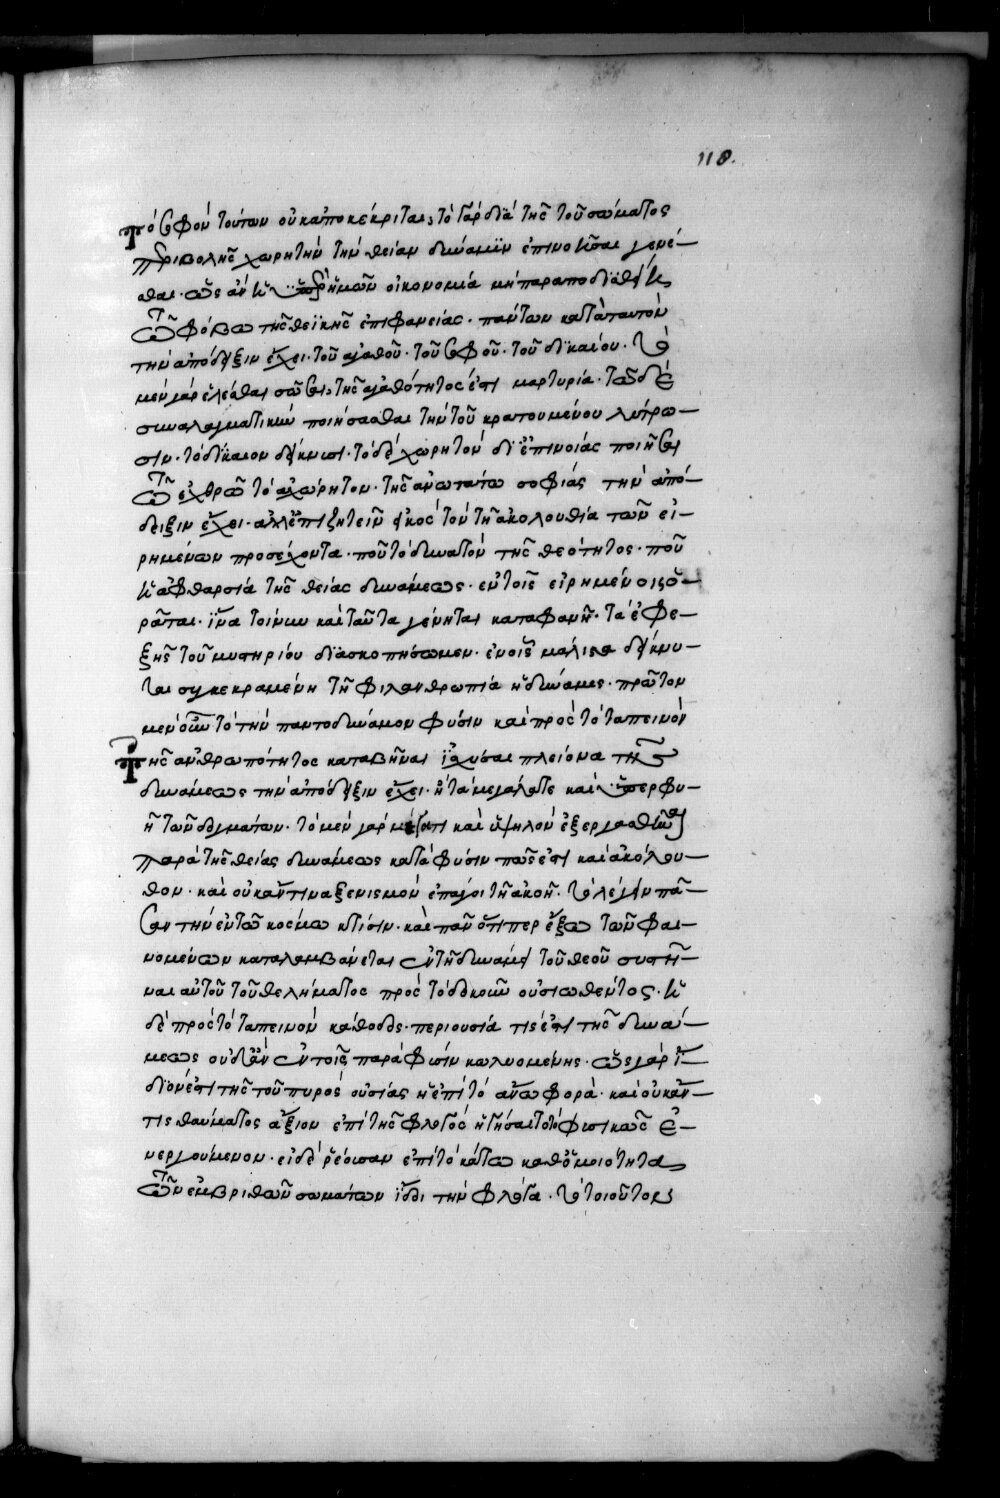 τὸ σοφὸν τούτων οὐκ ἀποκέκριται, τὸ γὰρ διὰ τῆς τοῦ σώματος
περιβολῆς χωρητὴν τὴν θείαν δύναμϊν ἐπινοῆσαι γενέ-
σθαι. ὡς ἂν ἡ ὑπὲρ ἡμῶν οἰκονομία μὴ παραποδϊσθῆ
τῶ φόβω τῆς θεϊκῆς ἐπιφανείας. πάντων κατὰ ταυτὸν
τὴν ἀπόδειξιν ἔχει. τοῦ ἀγαθοῦ. τοῦ σοφοῦ. τοῦ δϊκαίου. τὸ
μὲν γὰρ ἑλέσθαι σῶσαι, τῆς ἀγαθότητός ἐστι μαρτυρία. τῶ δὲ
συναλαγματικὴν ποιήσασθαι τὴν τοῦ κρατουμένου λύτρω-
σιν. τὸ δίκαιον δείκνυσι. τὸ δὲ χωρητὸν δι' ἐπινοίας ποιῆσαι
τῶ ἐχθρῶ τὸ ἀχώρητον. τῆς ἀνωτάτω σοφίας τὴν ἀπό-
δειξιν ἔχει. ἀλλ' ἐπιζητεῖν εἰκὸς τὸν τῆ ἀκολουθία τῶν εἰ-
ρημένων προσέχοντα. ποῦ τὸ δυνατὸν τῆς θεότητος. ποῦ
ἡ ἀφθαρσία τῆς θείας δυνάμεως. ἐν τοῖς εἰρημένοις ὁ-
ρᾶται. ἵνα τοίνυν καὶ ταῦτα γένηται καταφανῆ. τὰ ἐφε-
ξῆς τοῦ μυστηρίου δϊασκοπήσωμεν. ἐν οἷς μάλιστα δείκνυ-
ται συγκεκραμένη τῆ φιλανθρωπία ἡ δύναμις. πρῶτον
μὲν οὖν τὸ τὴν παντοδύναμον φύσιν καὶ πρὸς τὸ ταπεινὸν
τῆς ἀνθρωπότητος καταβῆναι ἰσχύσαι πλείονα τῆς
δυνάμεως τὴν ἀπόδειξιν ἔχει. ἢ τὰ μεγάλα τε καὶ ὑπερφυ-
ῆ τῶν θαυμάτων. τὸ μὲν γὰρ μέγα τι καὶ ὑψηλὸν ἐξεργασθῆναι
παρὰ τῆς θείας δυνάμεως κατὰ φύσιν πῶς ἐστι καὶ ἀκόλου-
θον. καὶ οὐκ ἄν τινα ξενισμὸν ἐπάγοι τῆ ἀκοῆ. τὸ λέγειν πᾶ-
σαν τὴν ἐν τῶ κόσμω κτίσιν. καὶ πᾶν ὅτιπερ ἔξω τῶν φαι-
νομένων καταλαμβάνεται ἐν τῆ δυνάμει τοῦ θεοῦ συστῆ-
ναι αὐτοῦ τοῦ θελήματος πρὸς τὸ δοκοῦν οὐσιωθέντος. ἡ
δὲ πρὸς τὸ ταπεινὸν κάθοδος. περιουσία τίς ἐστι τῆς δυνά-
μεως οὐδὲν ἐν τοῖς παρὰ φύσιν κωλυομένης. ὡς γὰρ ἴ-
διόν ἐστι τῆς τοῦ πυρὸς οὐσίας ἡ ἐπὶ τὸ ἄνω φορὰ. καὶ οὐκ ἄν
τις θαύματος ἄξιον ἐπὶ τῆς φλογὸς ἡγήσαιτο τὸ φυσικῶς ἐ-
νεργούμενον. εἰ δὲ ῥέουσαν ἐπὶ τὸ κάτω καθ' ὁμοιότητα
τῶν ἐμβριθῶν σωμάτων ἴδοι τὴν φλόγα. τὸ τοιοῦτον